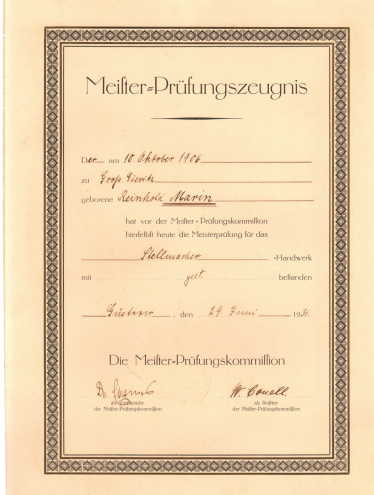 Meister-Prüfungszeugnis
Der am 10. Oktober 1906
zu Groß Gievitz
geborene Reinhold Marin
hat vor der Meister-Prüfungskommission
hierselbst heute die Meisterprüfung für das
Stellmacher -Handwerk
mit gut bestanden
Güstrow, den 29. Juni 1931.
Die Meister-Prüfungskommission
Dr. W.
als Vorsitzender als Beisitzer
der Meister-Prüfungskommission der Meister-Prüfungskommission